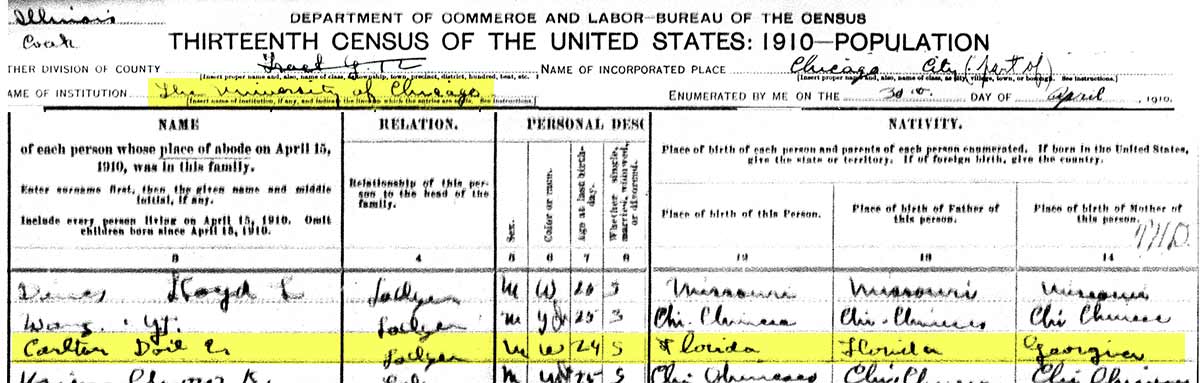 Illinois
DEPARTMENT OF COMMERCE AND LABOR-BUREAU OF THE CENSUS
Cook
THIRTEENTH CENSUS OF THE UNITED STATES: 1910—POPULATION
THER DIVISION OF COUNTY
NAME OF INCORPORATED PLACE Chicago City (Part of)
[Insert proper name and, also, name of class, as township, town, precinct, district, hundred, beat, etc.
[Insert proper name and, also, name of class, as city, village, town, or borough. See instructions.]
AME OF INSTITUTION The University of Chicago
ENUMERATED BY ME ON THE DAY OF April, 1910.
[Insert name of institution, if any, and indicate the lines on which the entries are made. See instructions.]
NAME RELATION. PERSONAL DESC NATIVITY.
of each person whose place of abode on April 15, 1910, was in this family.
Enter surname first, then the given name and middle initial, if any.
Include every person living on April 15, 1910. Omit children born since April 15, 1910.
Relationship of this person to the head of the family.
Sex.
Color or race.
Age at last birthday.
Whether single, married, widowed, or divorced.
Place of birth of each person and parents of each person enumerated. If born in the United States, give the state or territory. If of foreign birth, give the country.
Place of birth of this Person.
Place of birth of Father of this person.
Place of birth of Mother of this person.
3 4 5 6 7 8 12 13 14
Lloyd L Lodger M W 20 S Missouri Missouri Missouri
Wang Lodger M 25 S Chi Chinese Chi Chinese Chi Chinese
Carlton Doil E Lodger M W 24 S Florida Florida Georgia